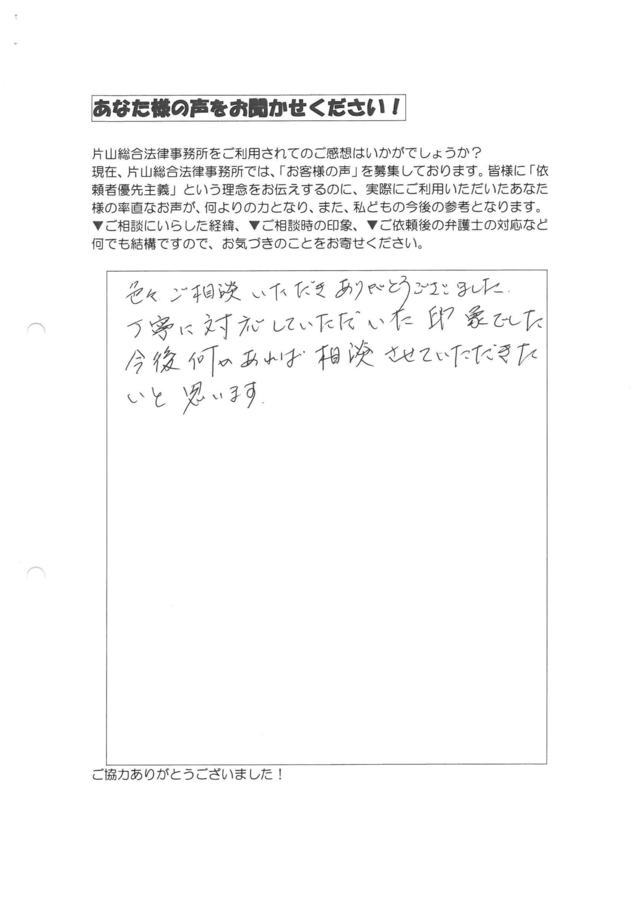 あなた様の声をお聞かせください！
片山総合法律事務所をご利用されてのご感想はいかがでしょうか？
現在、片山総合法律事務所では、「お客様の声」を募集しております。皆様に「依
頼者優先主義」という理念をお伝えするのに、実際にご利用いただいたあなた
様の率直なお声が、何よりの力となり、また、私どもの今後の参考となります。
▼ご相談にいらした経緯、▼ご相談時の印象、▼ご依頼後の弁護士の対応など
何でも結構ですので、お気づきのことをお寄せください。
色々ご相談いただきありがとうございました.
丁寧に対応していただいた印象でした
今後何かあれば相談させていただきた
いと思います.
ご協力ありがとうございました！